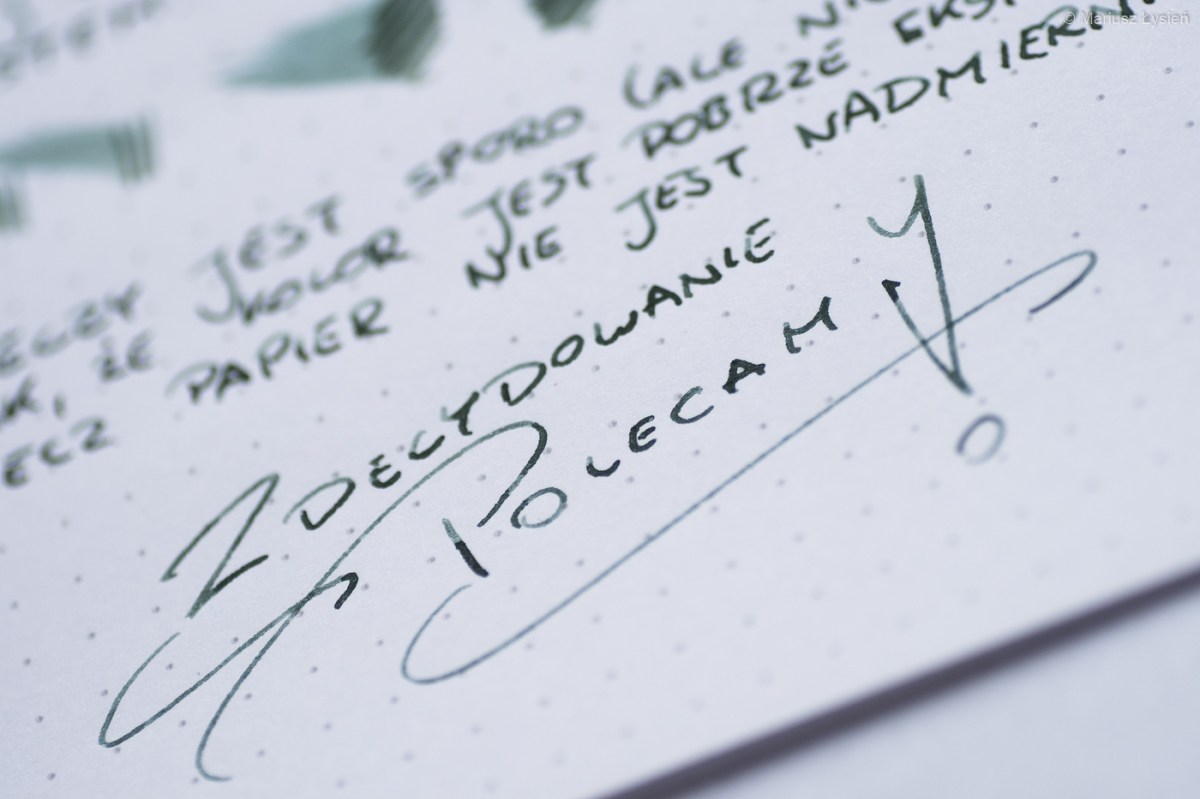 © Mariusz Łysień
JEST SPORO (ALE
ŻE KOLOR JEST DOBRZE
LECZ PAPIER NIE JEST NADMIERNIE
ZDECYDOWANIE
POLECAM!